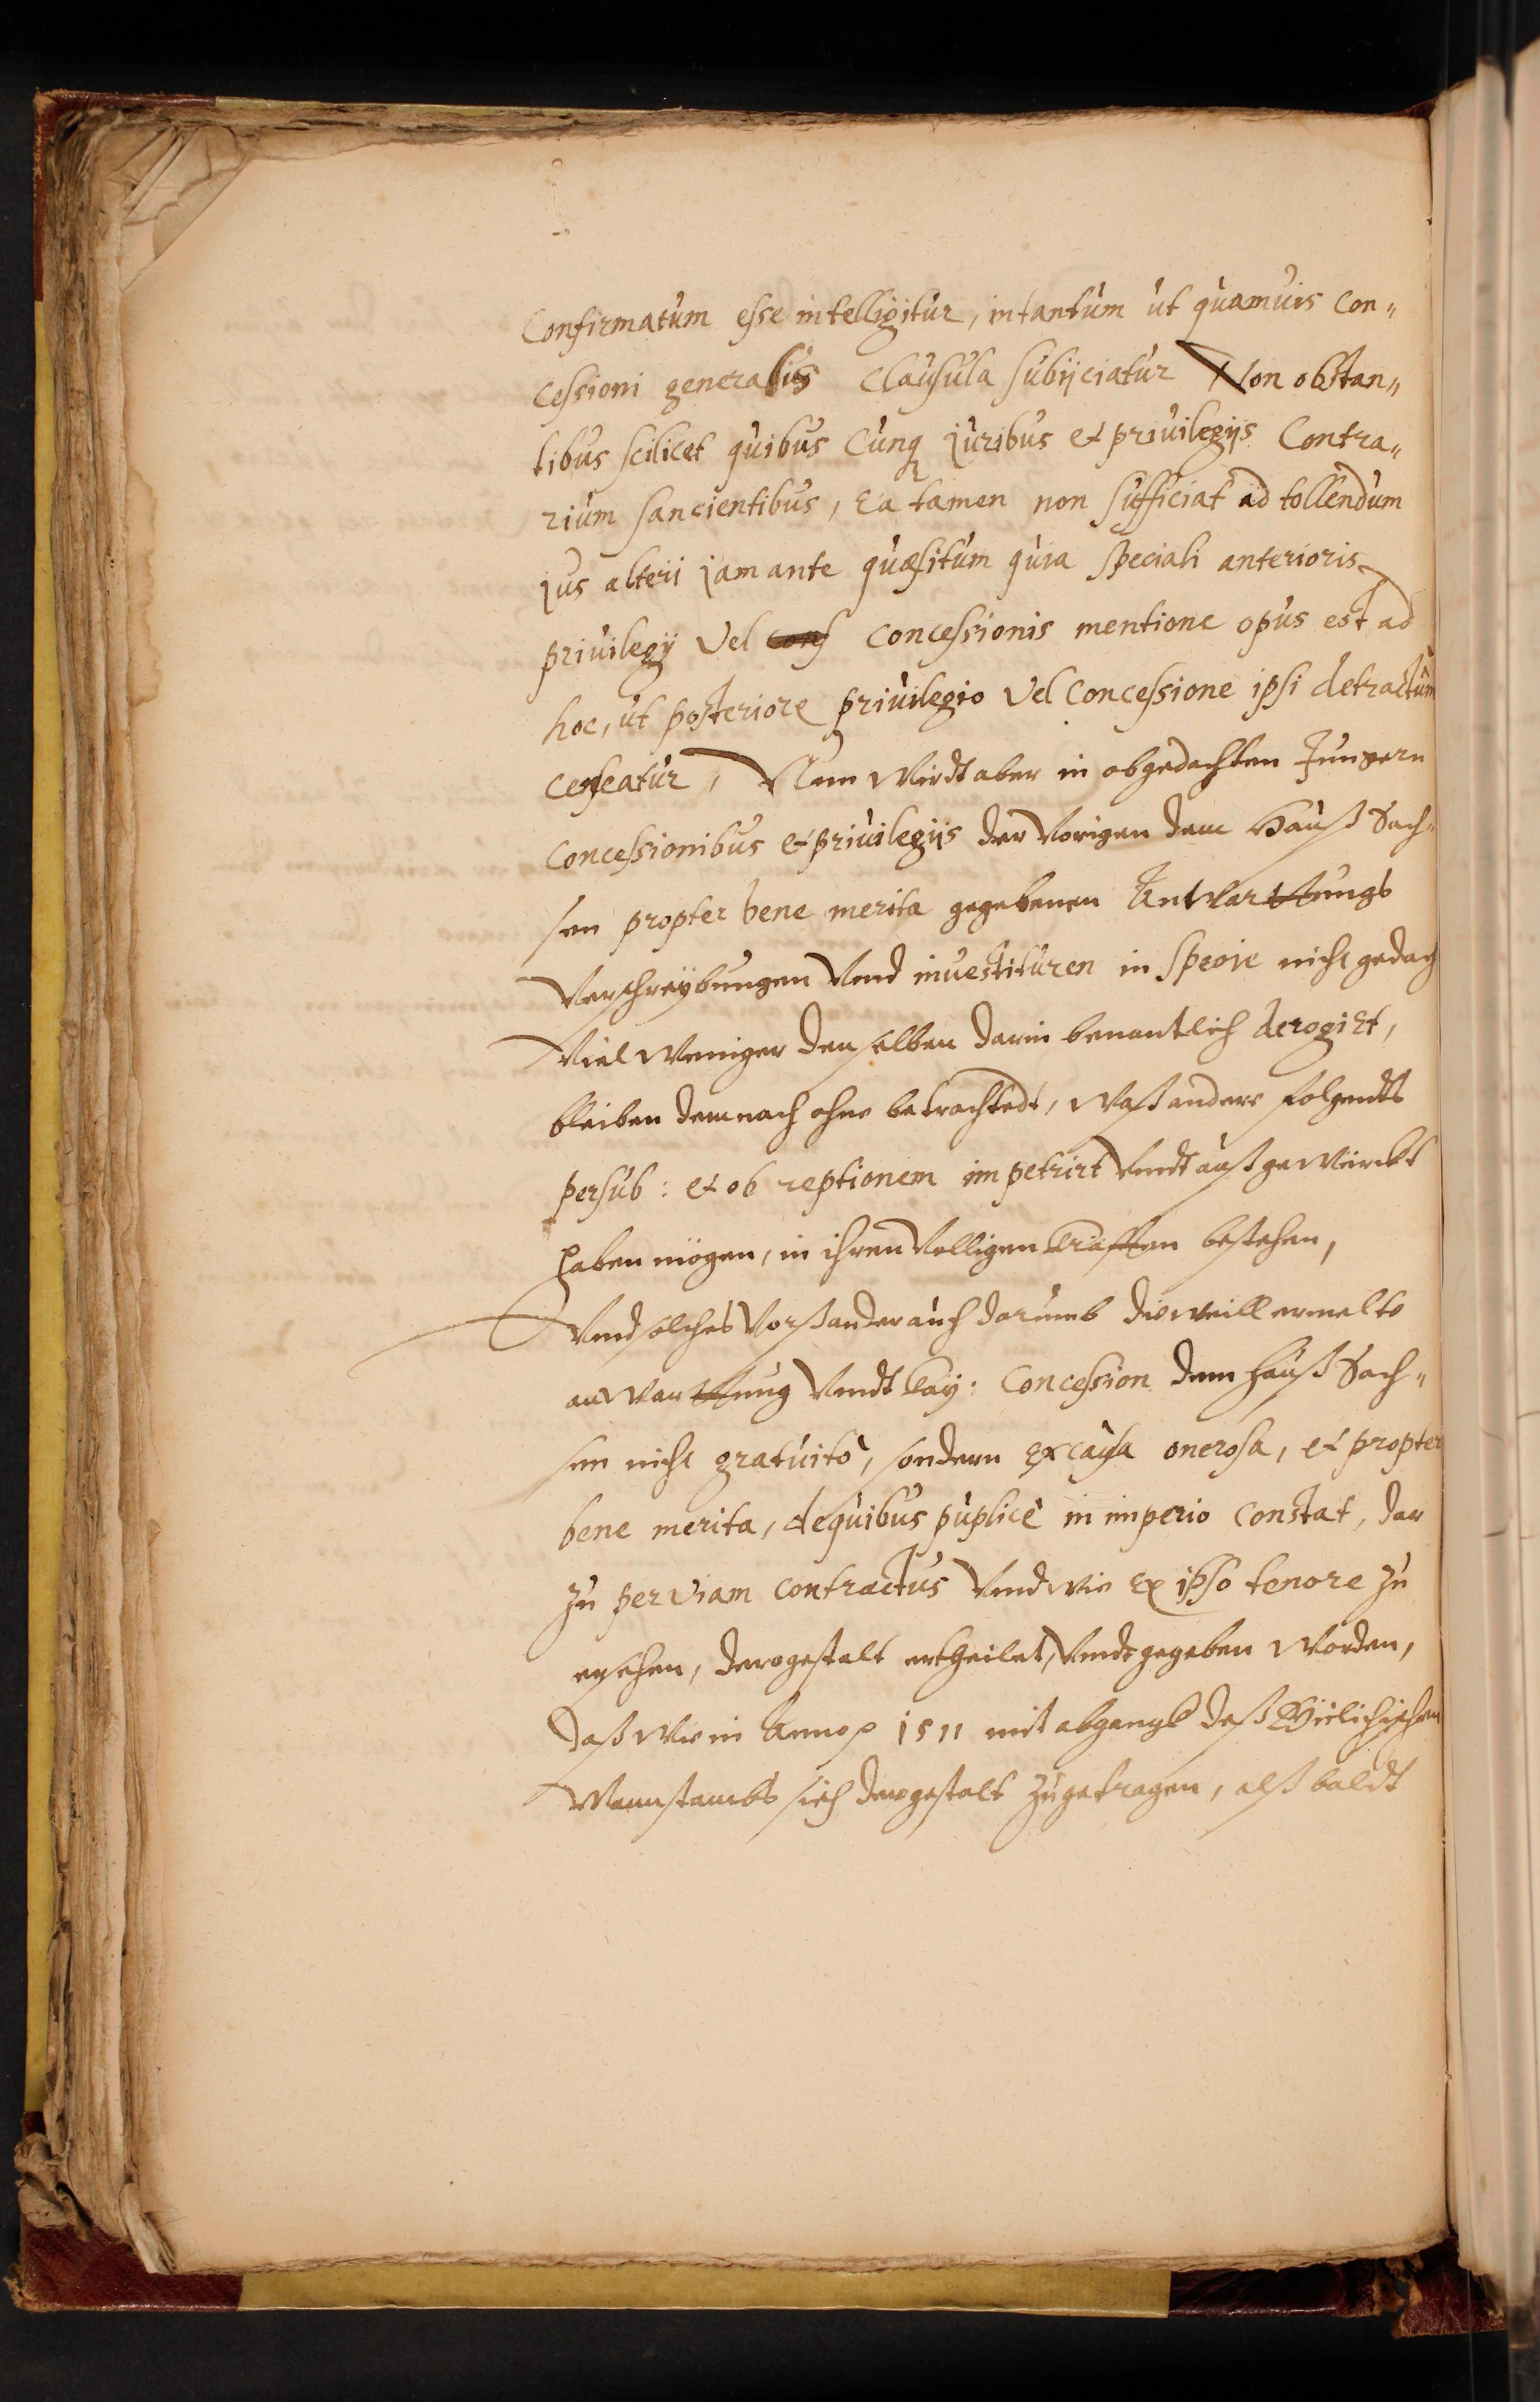 Confirmatum esse intelligitur, intantum ut quamuis Con„
cessioni generalis Clausula subijciatur Non obstan„
tibus scilicet quibus Cunq Juribus et priuilegijs Contra„
rium sancientibus, Ea tamen non sufficiat ad tollendum
Jus alteri jam ante quæsitum quia speciali anterioris
priuilegij Vel conf Concessionis mentione opus est ad
hoc, ut posteriore priuilegio Vel Concessione ipsi detractum
Censeatur, Nun Wirdt aber in obgedachten Jungern
Concessionibus et priuilegijs der Vorigen dem Hauß Sach„
sen propter bene merita gegebenen Anwarttungs
Verschreybungen Vnnd inuestituren in Specie nicht gedach
Viel Weniger denselben darin benantlich derogirt,
bleiben demnach ohne betrachtedt, Waß andere folgendts
per sub: et ob reptionem impetrirt Vndt außgewürckt
haben mögen, in ihren Volligen Kräfften bestehen,
Vnd solches Vorß ander auch darumb dieweill ermelte
anwarttung Vndt Kay: Concession dem Hauß Sach„
sen nicht gratuito, sondern ex causa onerosa, et propter
bene merita, de quibus puplicè in imperio Constat, dar
zu per Viam Contractus Vnd wie ex ipso tenore zu
ersehen, derogestalt ertheilet, Vndt gegeben Worden,
Daß Wie in Anno 1511 mit abgangk deß Gülichischen
Mannstambs sich dergestalt zugetragen, alß baldt